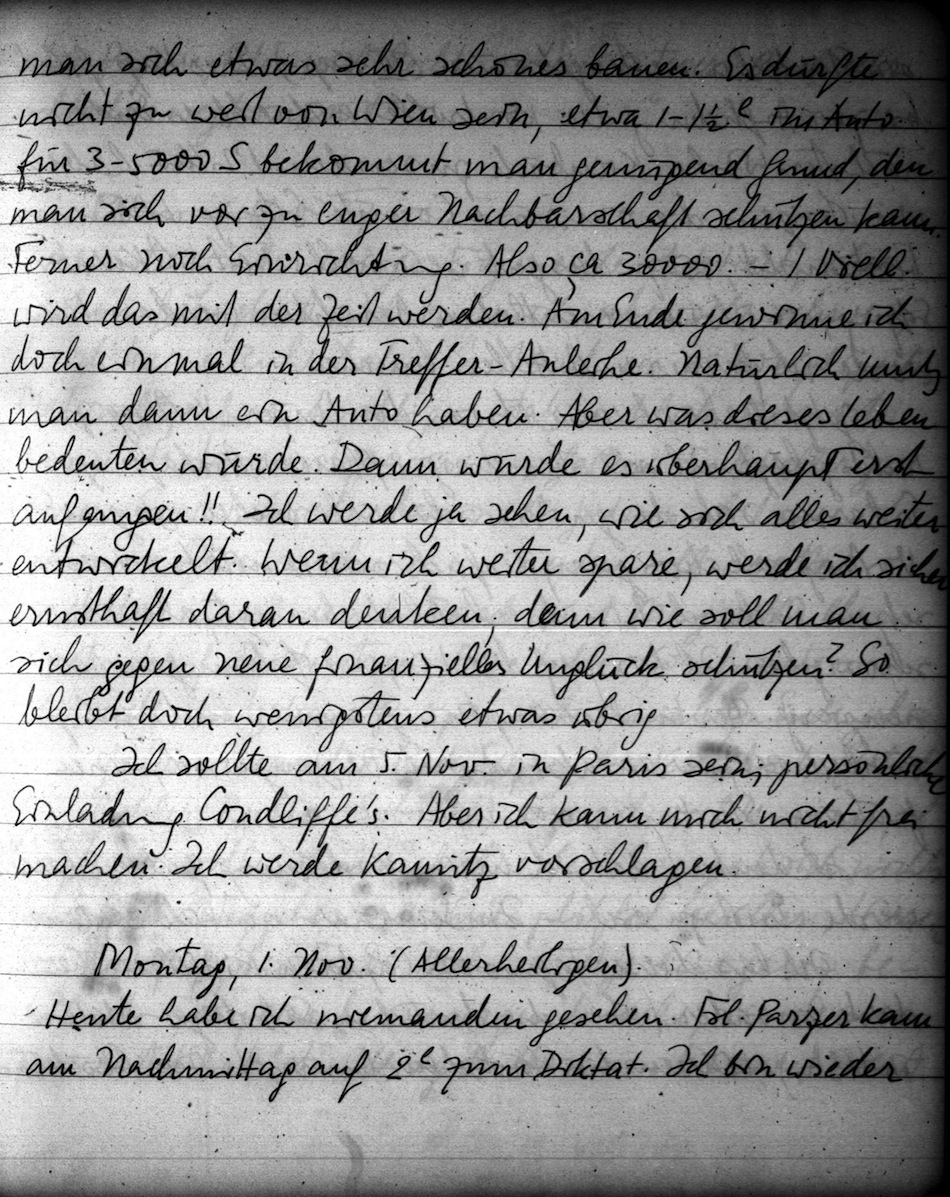 man sich etwas sehr schönes bauen. Es dürfte
nicht zu weit von Wien sein, etwa 1-1½ ͪ im Auto.
für 3-5000 S bekommt man genügend Grund, den
man sich vor zu enger Nachbarschaft schützen kann.
Ferner noch Einrichtung. Also ca 30000. – / Viell.
wird das mit der Zeit werden. Am Ende gewinne ich
doch einmal in der Treffer-Anleihe. Natürlich muß
man dann ein Auto haben. Aber was dieses Leben
bedeuten würde. Dann würde es überhaupt erst
anfangen!! Ich werde ja sehen, wie sich alles weiter
entwickelt. Wenn ich weiter spare, werde ich sicher
ernsthaft daran denken, denn wie soll man
sich gegen neue finanzielles Unglück schützen? So
bleibt doch wenigstens etwas übrig
Ich sollte am 5. Nov. in Paris sein; persönliche
Einladung Condliffe's. Aber ich kann mich nicht frei
machen. Ich werde Kamitz vorschlagen.
Montag, 1. Nov. (Allerheiligen).
Heute habe ich niemanden gesehen. Frl. Parzer kam
am Nachmittag auf 2 ͪ zum Diktat. Ich bin wieder